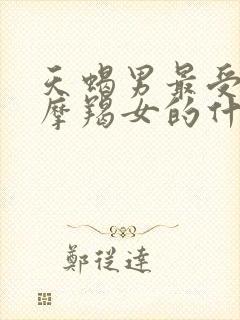 天蝎男最受
摩羯女的什
鄭從達